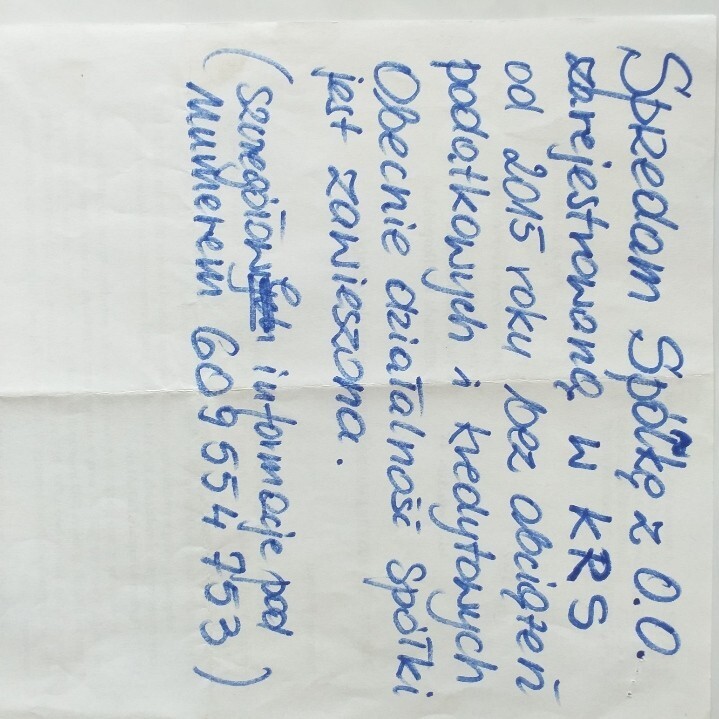 Sprzedam Spółkę z O.O.
zarejestrowaną w KRS
od 2015 roku bez obciążeń
podatkowych i kredytowych
Obecnie działalność spółki
jest zawieszona.
( szczegółowe informacje pod
numerem 609 554 753 )